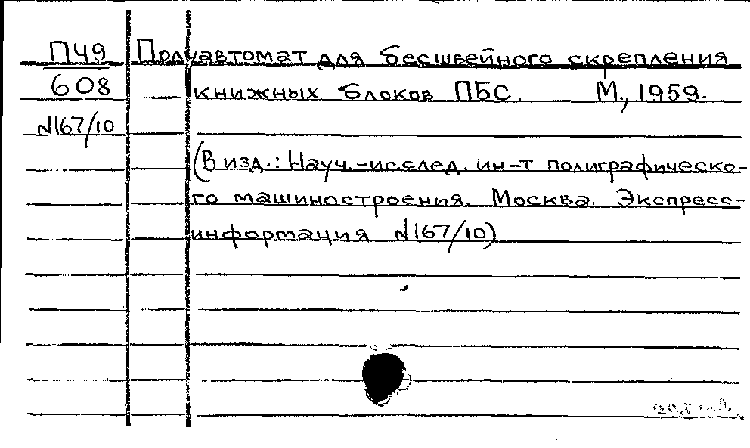 П49 Полуавтомат для бесшвейного скрепления
608 книжных блоков ПБС. М., 1959.
№167/10
(В изд.: Науч.-исслед. ин-т полиграфическо-
го машиностроения. Москва. Экспресс-
информация №167/10)